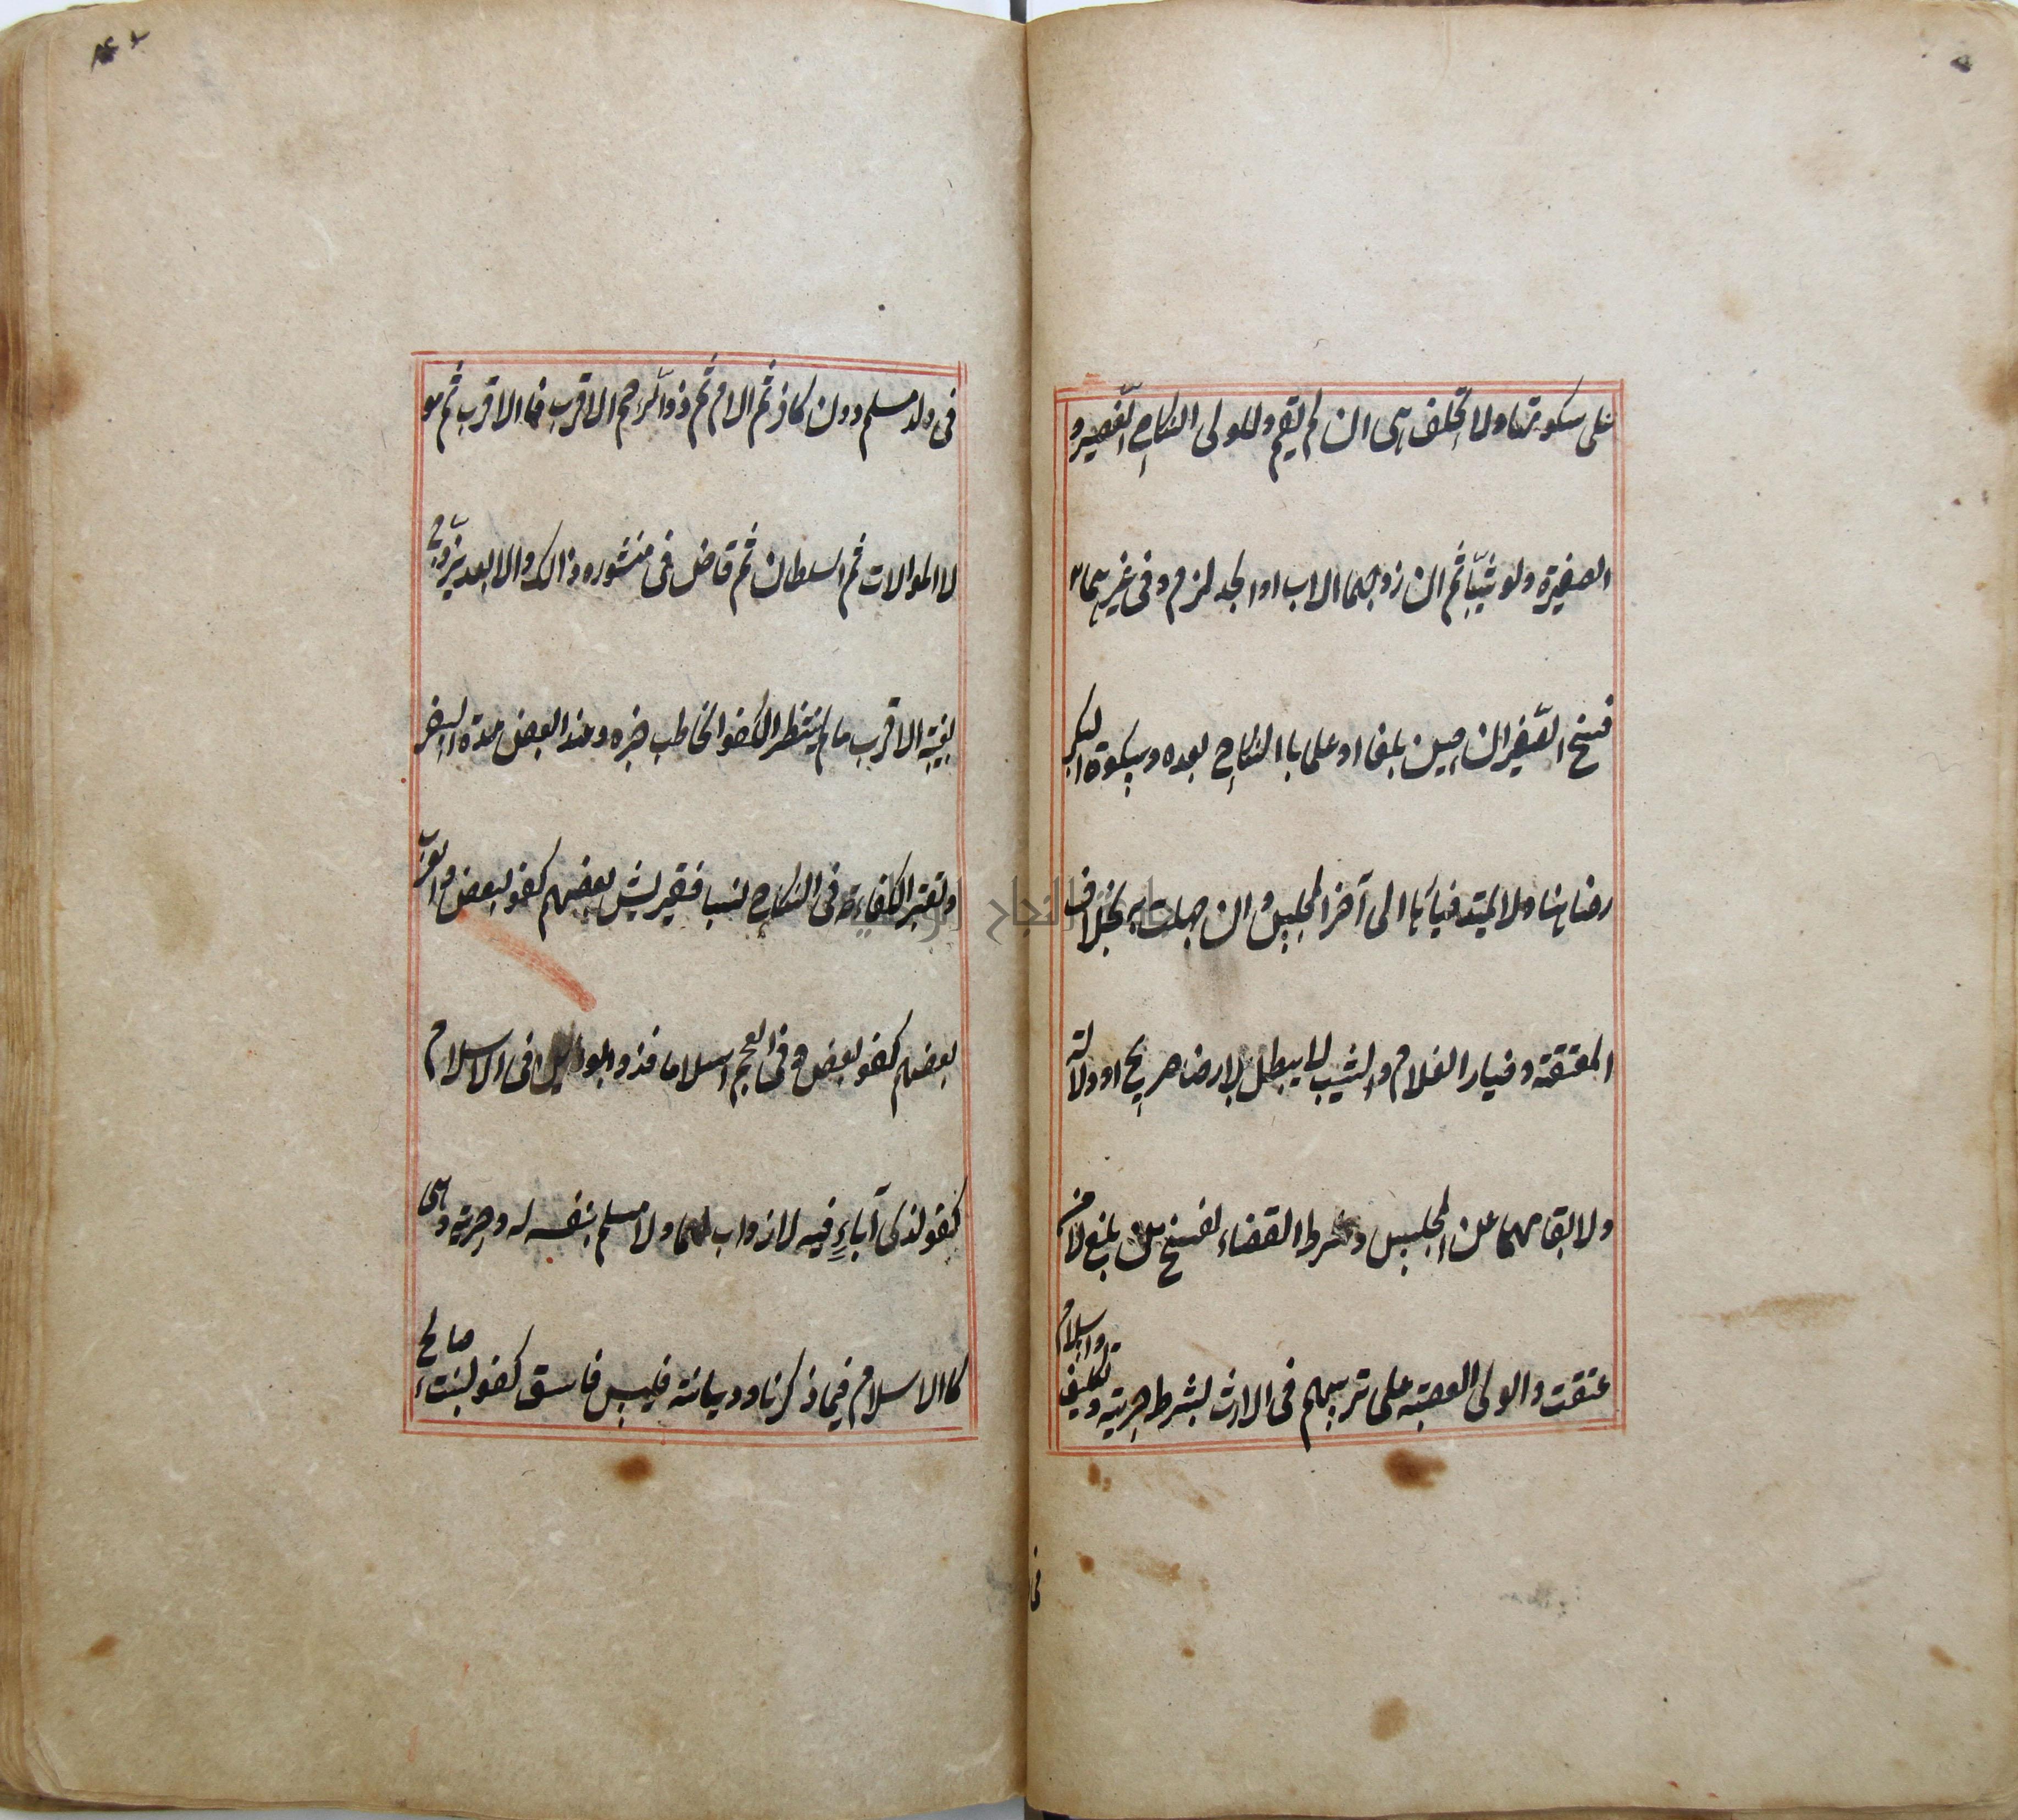 على سكوتها ولا تحلف هى ان لم يقم وللولى انكاح الصغير و
الصغيرة ولو ثيبا ثم ان زوجهما الاب او الجد لزم وفى غيرهما
فسخ الصغيران حين بلغا او علما بالنكاح بعده وسكوت البكر
رضا هنا ولا يمتد خيارها الى آخر المجلس وان جهلت به بخلاف
المعتقة وخيار الغلام والثيب لا يبطل بلا رضا صريح او دلالة
ولا بقيامهما عن المجلس وشرط القضاء لفسخ من بلغ لا من
عتقت والولى العصبة على ترتيبهم فى الارث بشرط حرية وتكليف واسلام
فى
فى ولد مسلم دون كافر ثم الام ثم ذو الرحم الاقرب فالاقرب ثم مو
لا الموالات ثم السلطان ثم قاض فى منشوره ذالك والابعد يزوج
بغيبة الاقرب ما لم ينتظر الكفو الخاطب خبره وعند البعض مدة السفر
وتعتبر الكفاءة فى النكاح نسبا فقريش بعضهم كفو لبعض والعرب
بعضهم كفو لبعض وفى العجم اسلاما فذو ابوين فى الاسلام
كفو لذى آباء فيه لا ذو اب لهما ولا مسلم بنفسه له وحرية وهى
كالاسلام فيما ذكرنا وديانة فليس فاسق كفو لبنت صالح